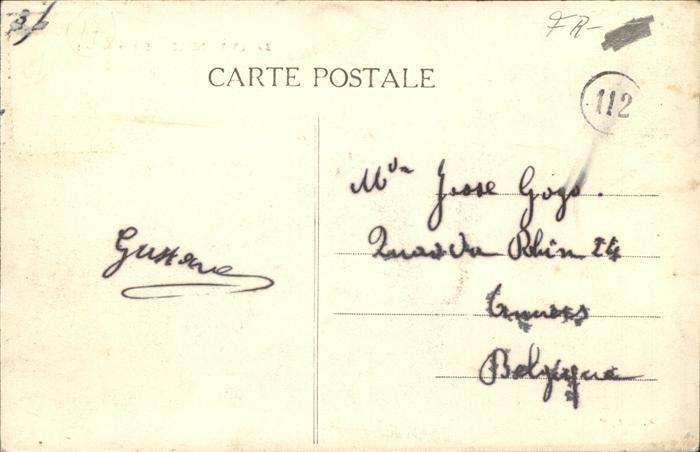 3/
FR-
CARTE POSTALE
112
Mr Josse Gogo.
Quai du Rhin 24
Gustave
Anvers
Belgique